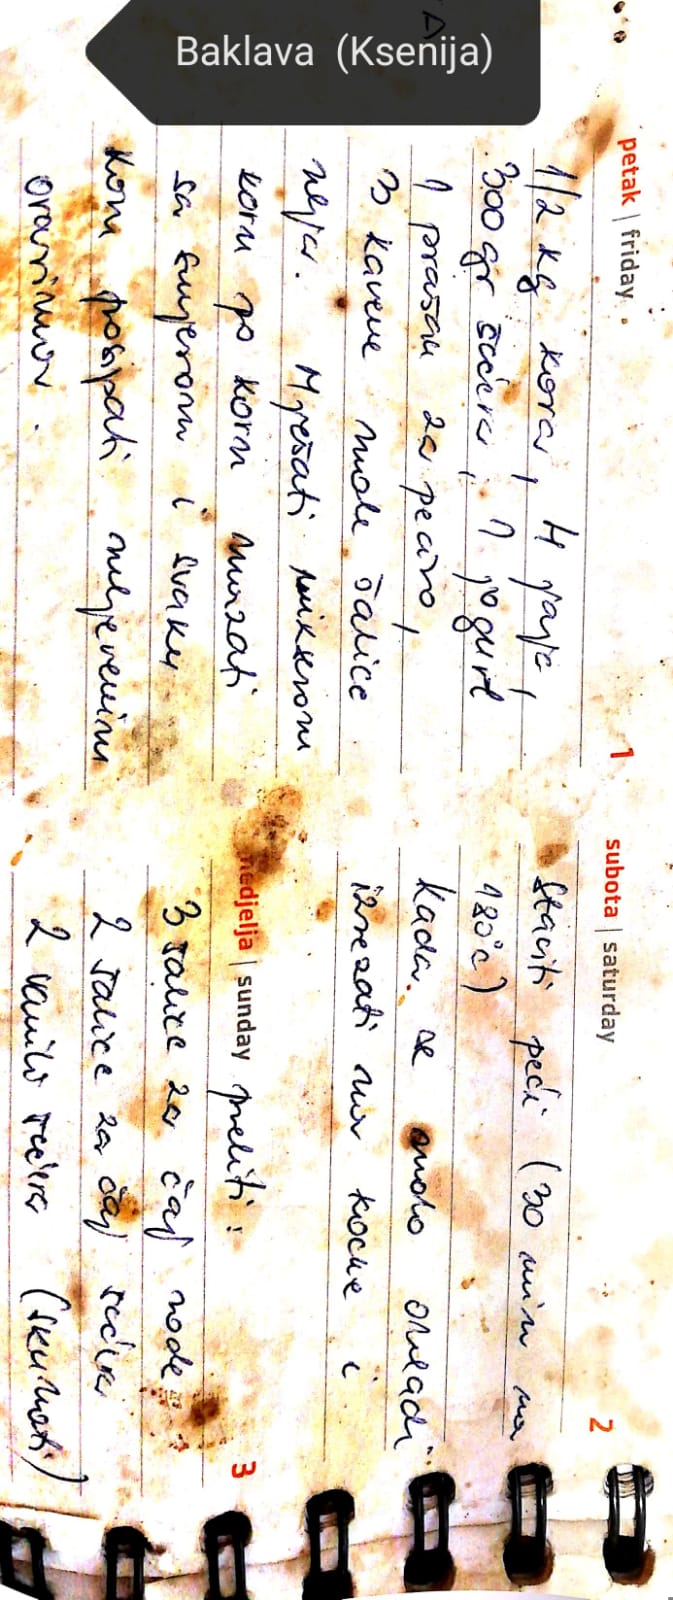 Baklava (Ksenija)
petak | friday 1
1/2 kg kora, 4 jaja,
300 gr šećera, 1 jogurt
1 prašak za pecivo,
3 kavene male šalice
ulja. Mješati mikserom
koru po koru mazati
sa smjesom i svaku
koru posipati mljevenim
orasima.
subota | saturday 2
Staviti peći (30 min na
180°C)
Kada se malo ohladi
izrezati na kocke i
nedjelja | sunday 3
preliti:
3 šalice za čaj vode
2 šalice za čaj šećera
2 vanilo šećera (skuhati)